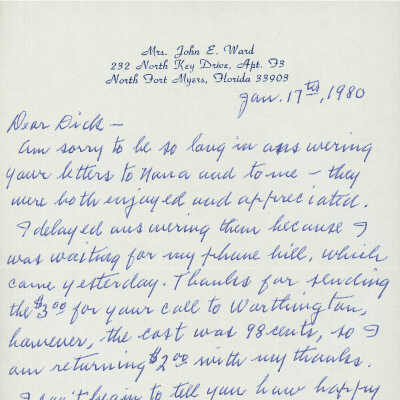 Mrs. John E. Ward
232 North Key Drive, Apt. F3
North Fort Myers, Florida 33903
Jan. 17th, 1980
Dear Dick –
Am sorry to be so long in answering
your letters to Nana and to me – they
were both enjoyed and appreciated.
I delayed answering them because I
was waiting for my phone bill, which
came yesterday. Thanks for sending
the $3.00 for your call to Worthington,
however, the cost was 98 cents, so I
am returning $2.00 with my thanks.
I can't begin to tell you how happy